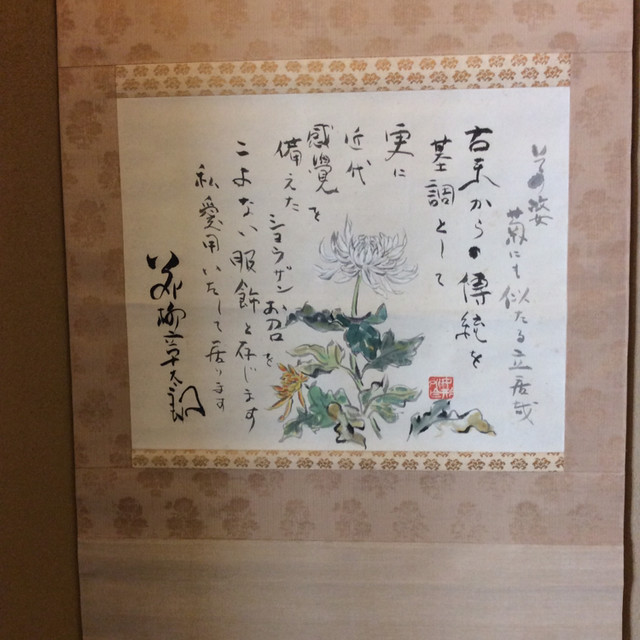 菊にも似たる立居哉
古来からの傳統を
基調として
更に
近代
感覺を
備えた
ショウザンお召を
こよない服餝と存じます
私愛用いたして居ります